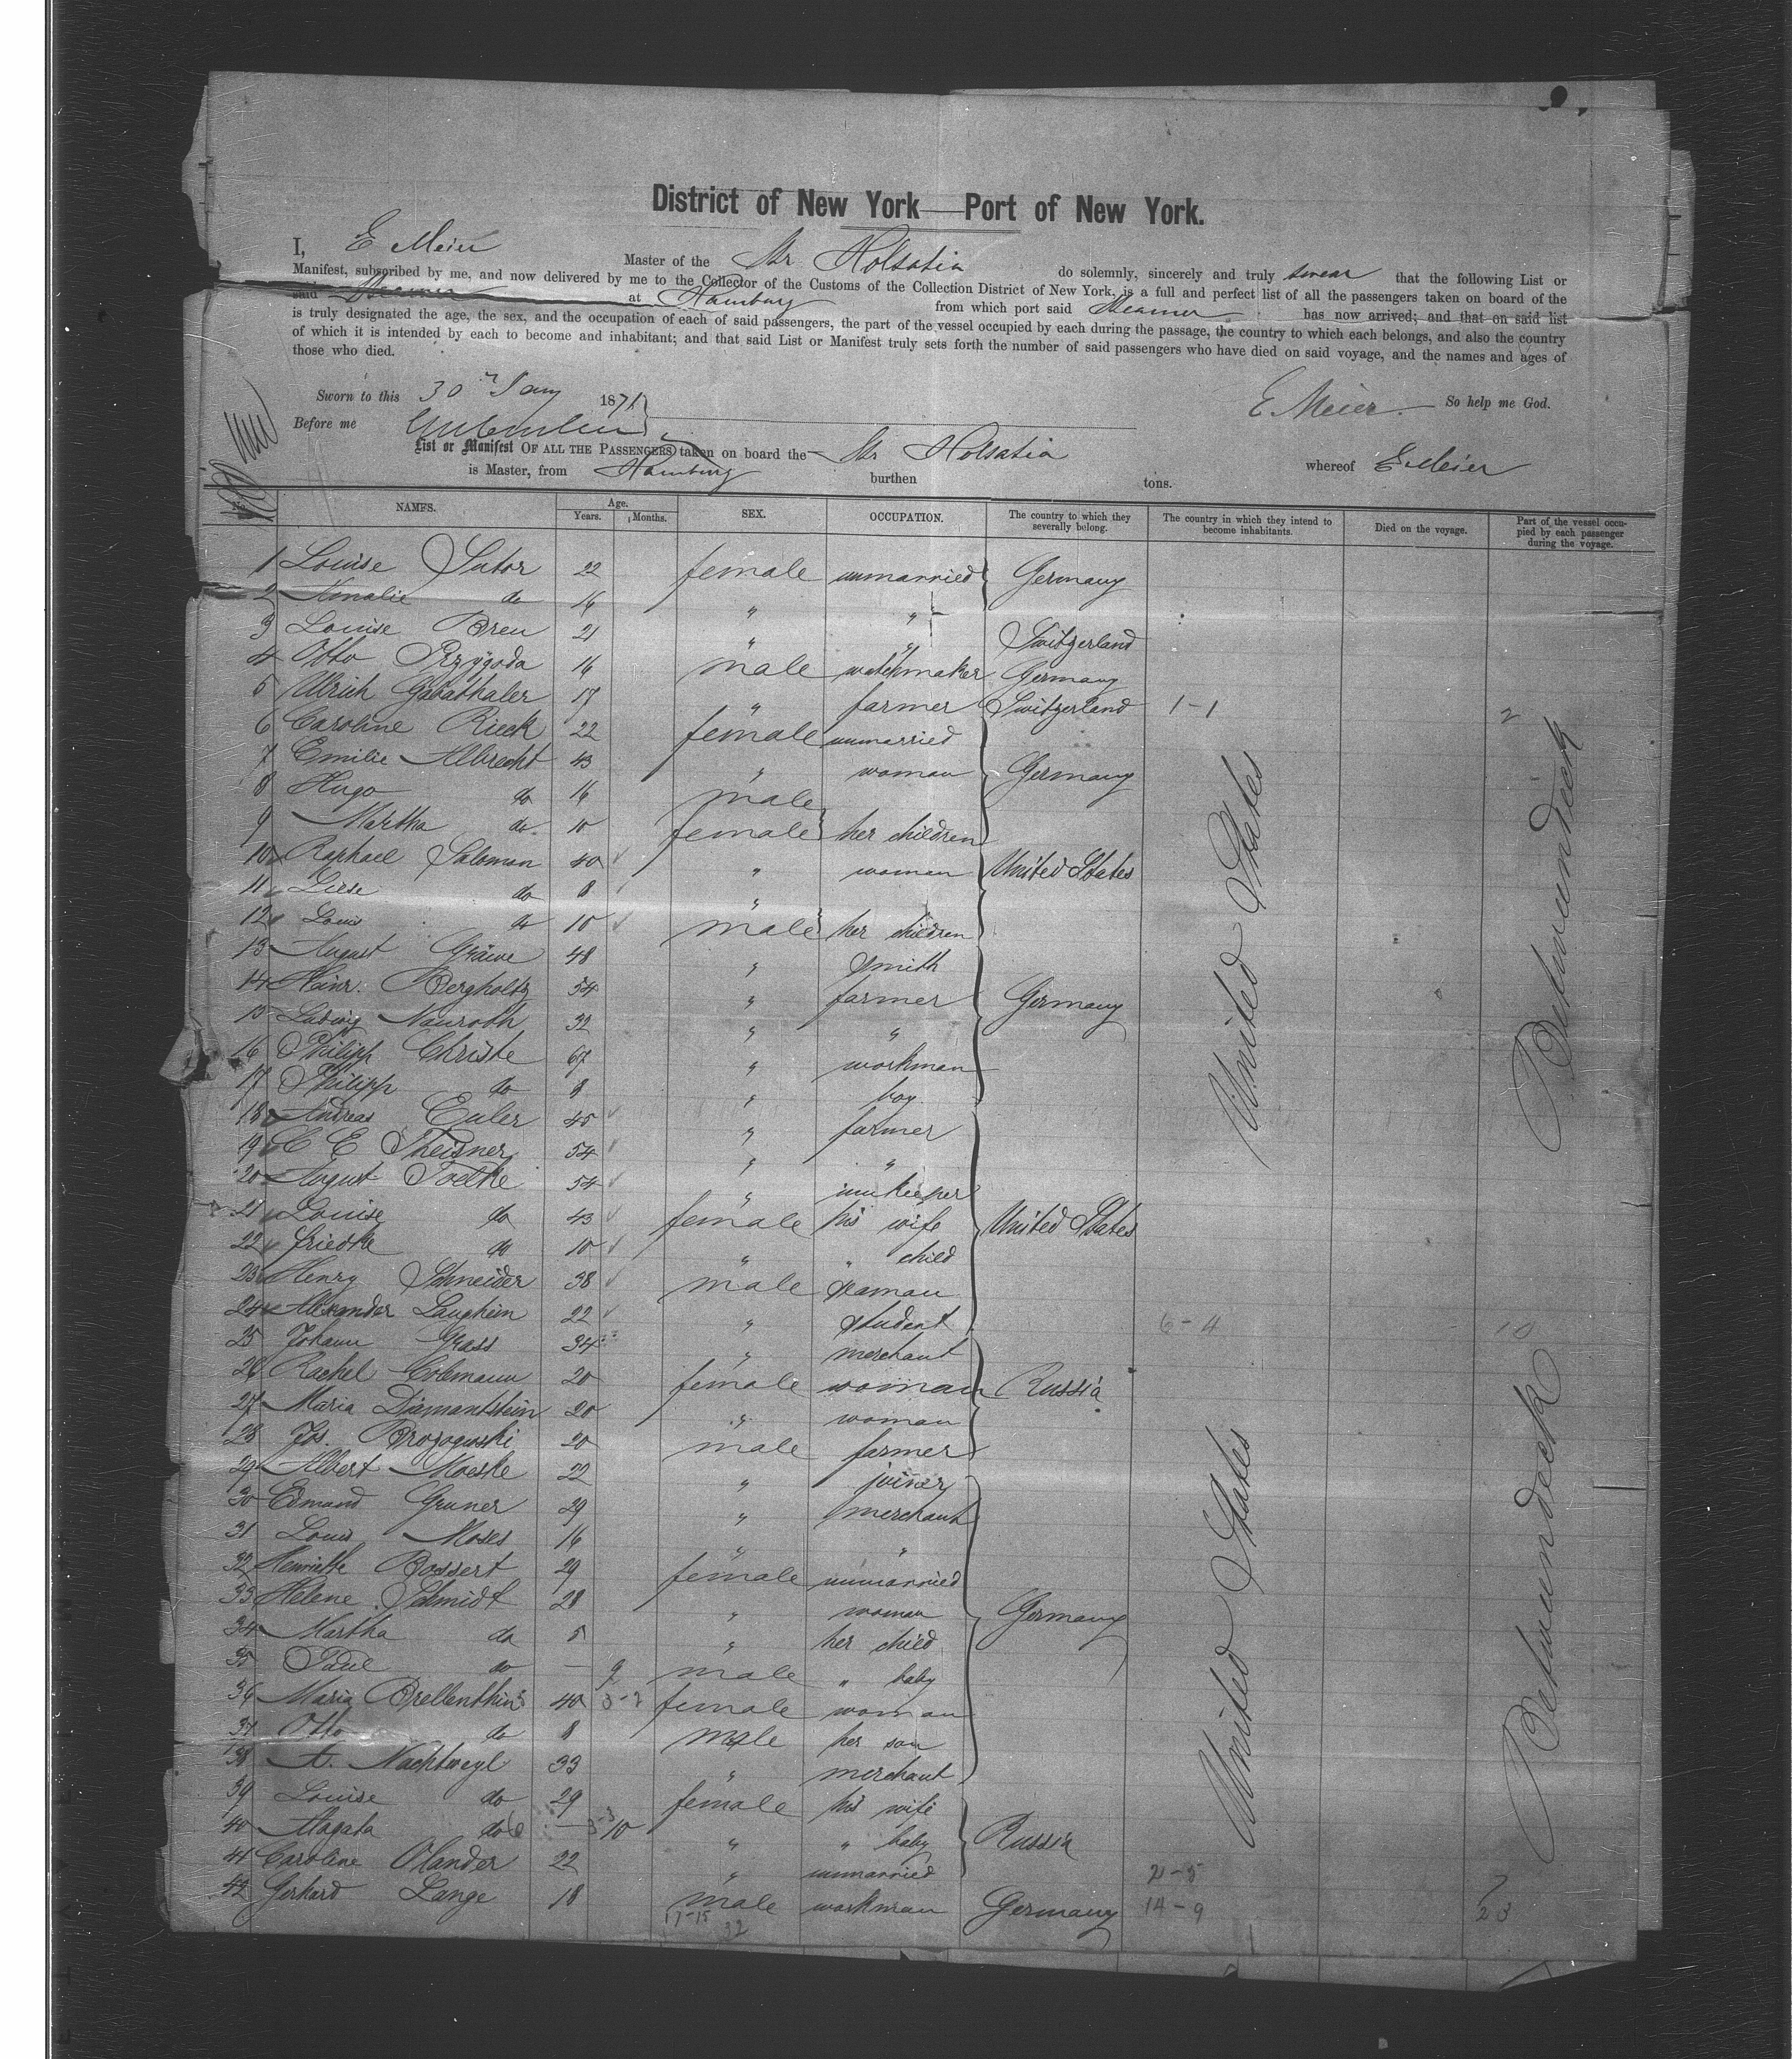 District of New York—Port of New York.
I, E Meier Master of the Str Holsatia do solemnly, sincerely and truly swear that the following List or
Manifest, subscribed by me, and now delivered by me to the Collector of the Customs of the Collection District of New York, is a full and perfect list of all the passengers taken on board of the
said Steamer at Hamburg from which port said Steamer has now arrived; and that on said list
is truly designated the age, the sex, and the occupation of each of said passengers, the part of the vessel occupied by each during the passage, the country to which each belongs, and also the country
of which it is intended by each to become and inhabitant; and that said List or Manifest truly sets forth the number of said passengers who have died on said voyage, and the names and ages of
those who died.
Sworn to this 30th Jany 187 E Meier So help me God.
Before me
List or Manifest OF ALL THE PASSENGERS taken on board the Str Holsatia whereof E Meier
is Master, from Hamburg burthen tons.
No. NAMES. Age. Years. Months. SEX. OCCUPATION. The country to which they severally belong. The country in which they intend to become inhabitants. Died on the voyage. Part of the vessel occupied by each passenger during the voyage.
1 Louise Sutor 22 female unmarried Germany
2 Amalie do 16 " "
3 Louise Breu 21 " " Switzerland
4 Otto Przygoda 16 male watchmaker Germany
5 Ulrich Gabathaler 17 " farmer Switzerland 1-1 2
6 Caroline Rieck 22 female unmarried
7 Emilie Albrecht 43 " woman Germany
8 Hugo do 16 male
9 Martha do 10 female her children
10 Raphael Salomon 40 " woman United States
11 Liese do 8 "
12 Louis do 10 male her children
13 August Gräwe 48 " Smith
14 Heinr. Bergholtz 54 " farmer Germany
15 Ludwig Nauroth 32 " "
16 Philipp Christe 67 " workman
17 Philipp do 8 " boy
18 Andreas Euler 45 " farmer
19 C E Theisner 54 " "
20 August Poelke 54 " innkeeper
21 Louise do 43 female his wife United States
22 friedke do 10 " " child
23 Henry Schneider 38 male seaman
24 Alexander Laughein 22 " student 6-4 10
25 Johann Grass 34 " merchant
26 Rachel Colemann 20 female woman Russia
27 Maria Diamantstein 20 " woman
28 Jos. Brozogowski 20 male farmer
29 Albert Moeske 22 " joiner
30 Edmund Gruner 29 " merchant
31 Louis Moses 16 " "
32 Henriette Bossert 29 female unmarried
33 Helene Schmidt 28 " woman Germany
34 Martha do 5 " her child
35 Paul do — 9 male " baby
36 Maria Brellenthin 40 female woman
37 Otto do 8 male her son
38 A. Nachtweyl 33 " merchant
39 Louise do 29 female his wife
40 Magata do — 10 " " baby Russia
41 Caroline Olander 22 " unmarried 2-5 7
42 Gerhard Lange 18 male workman Germany 14-9 23
17-15
32
United States
Between deck
United States
Between deck